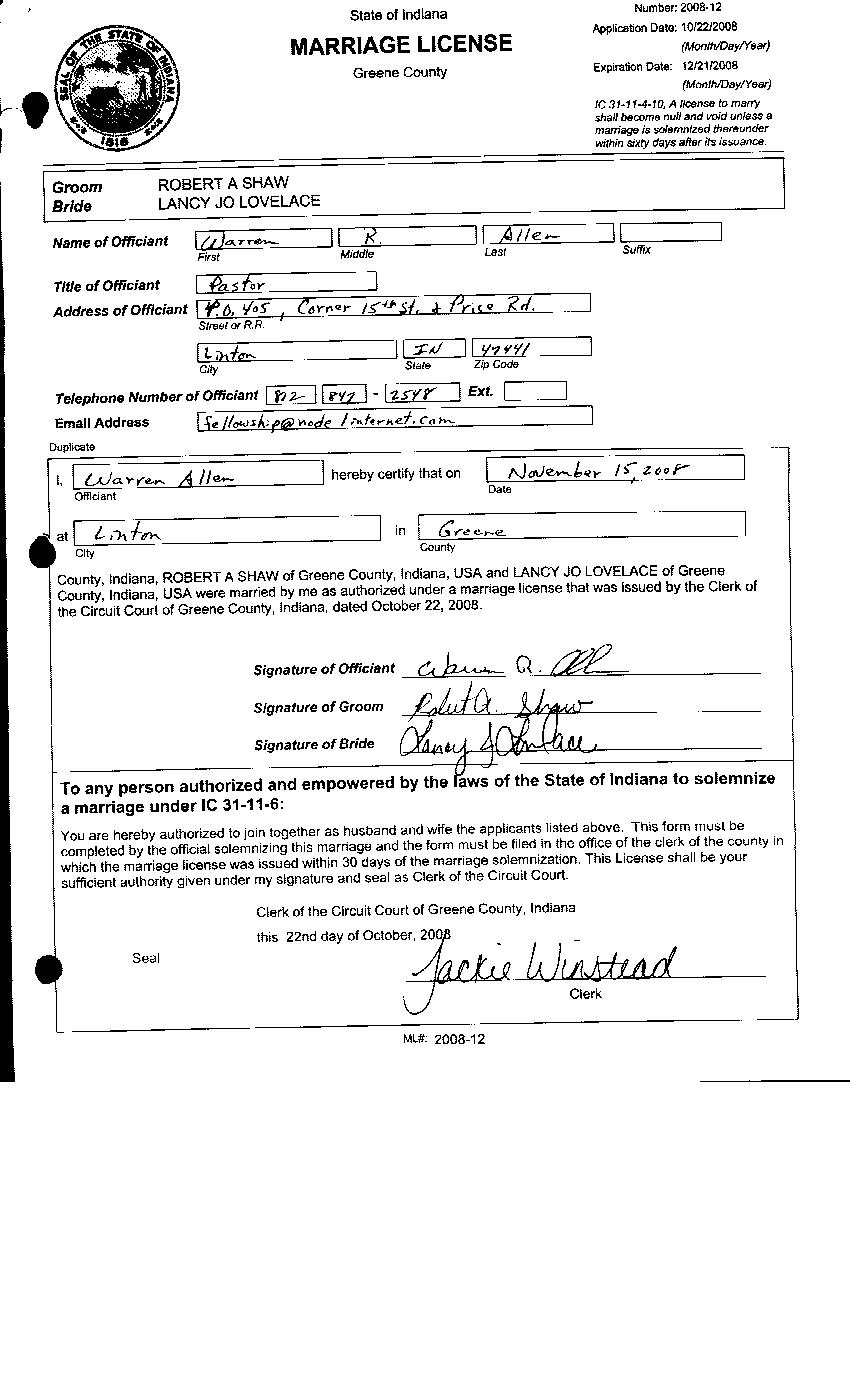 State of Indiana
MARRIAGE LICENSE
Greene County
Number: 2008-12
Application Date: 10/22/2008
(Month/Day/Year)
Expiration Date: 12/21/2008
(Month/Day/Year)
IC 31-11-4-10, A license to marry
shall become null and void unless a
marriage is solemnized thereunder
within sixty days after its issuance.
SEAL OF THE STATE OF INDIANA
1816
Groom ROBERT A SHAW
Bride LANCY JO LOVELACE
Name of Officiant Warren R. Allen
First Middle Last Suffix
Title of Officiant Pastor
Address of Officiant P.O. 405, Corner 15th St. & Price Rd.
Street or R.R.
Linton IN 47441
City State Zip Code
Telephone Number of Officiant 812 847 - 2548 Ext.
Email Address fellowship@node1internet.com
Duplicate
I, Warren Allen hereby certify that on November 15, 2008
Officiant Date
at Linton in Greene
City County
County, Indiana, ROBERT A SHAW of Greene County, Indiana, USA and LANCY JO LOVELACE of Greene
County, Indiana, USA were married by me as authorized under a marriage license that was issued by the Clerk of
the Circuit Court of Greene County, Indiana, dated October 22, 2008.
Signature of Officiant Warren R. Allen
Signature of Groom Robert A. Shaw
Signature of Bride Lancy J Lovelace
To any person authorized and empowered by the laws of the State of Indiana to solemnize
a marriage under IC 31-11-6:
You are hereby authorized to join together as husband and wife the applicants listed above. This form must be
completed by the official solemnizing this marriage and the form must be filed in the office of the clerk of the county in
which the marriage license was issued within 30 days of the marriage solemnization. This License shall be your
sufficient authority given under my signature and seal as Clerk of the Circuit Court.
Clerk of the Circuit Court of Greene County, Indiana
this 22nd day of October, 2008
Seal
Jackie Winstead
Clerk
ML#: 2008-12